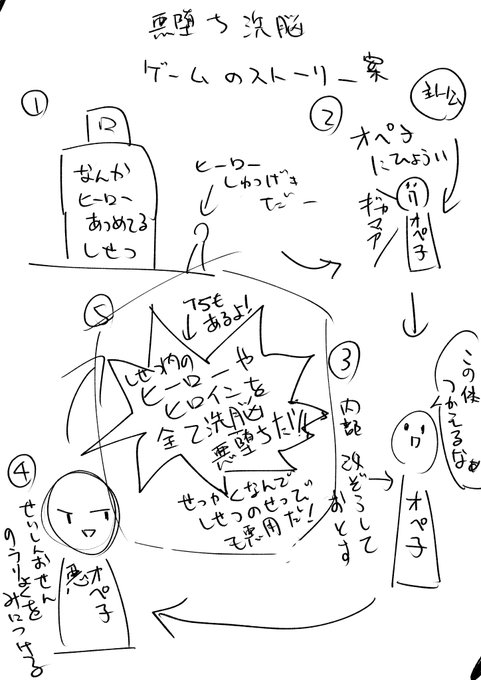 悪堕ち洗脳
ゲームのストーリー案
①
ロ
なんか
ヒーロー
あつめてる
しせつ
ヒーロー
しゅつげき
だー
②
オペ子
にひょうい
オペ子
ギャアア
③
この体
つかえるなぁ
オペ子
内部
改ぞうして
おとす
④
せいしんおせん
のうりょくを
みにつける
オペ子
悪
⑤
TSも
あるよ!
しせつ内の
ヒーローや
ヒロインを
全て洗脳
悪堕ちだ!!
せっかくなんで
しせつのせつび
も悪用だ!